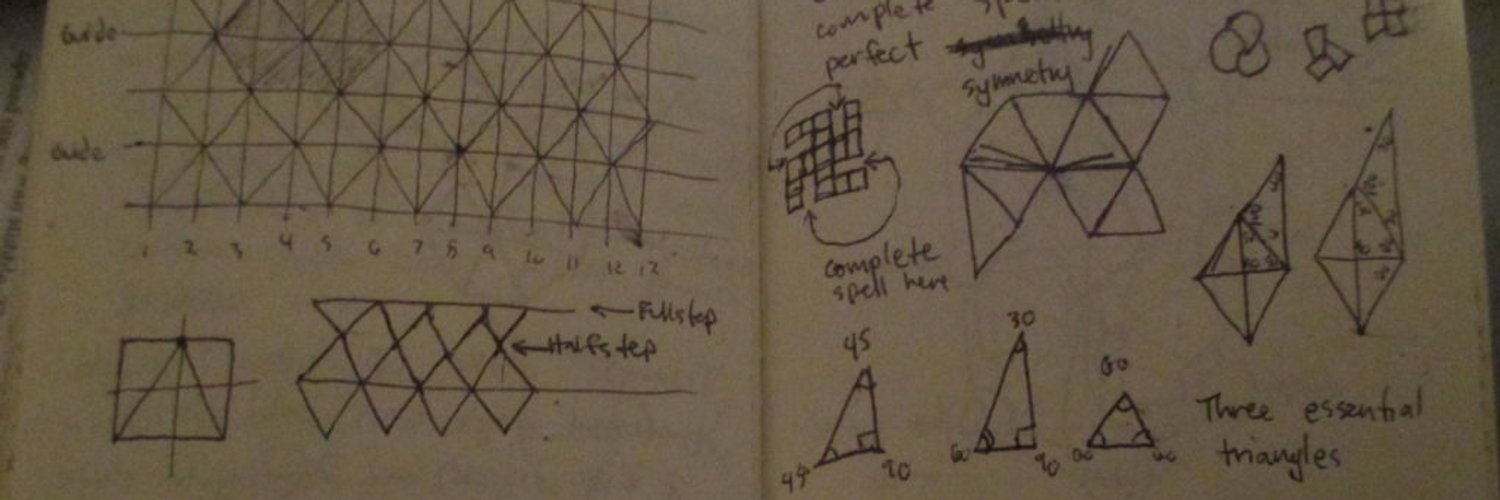 Guide
Guide
1 2 3 4 5 6 7 8 9 10 11 12 13
Fullstep
Halfstep
complete
perfect
symmetry
complete
spell here
45
45 90
30
60 90
60
60 60
Three essential
triangles